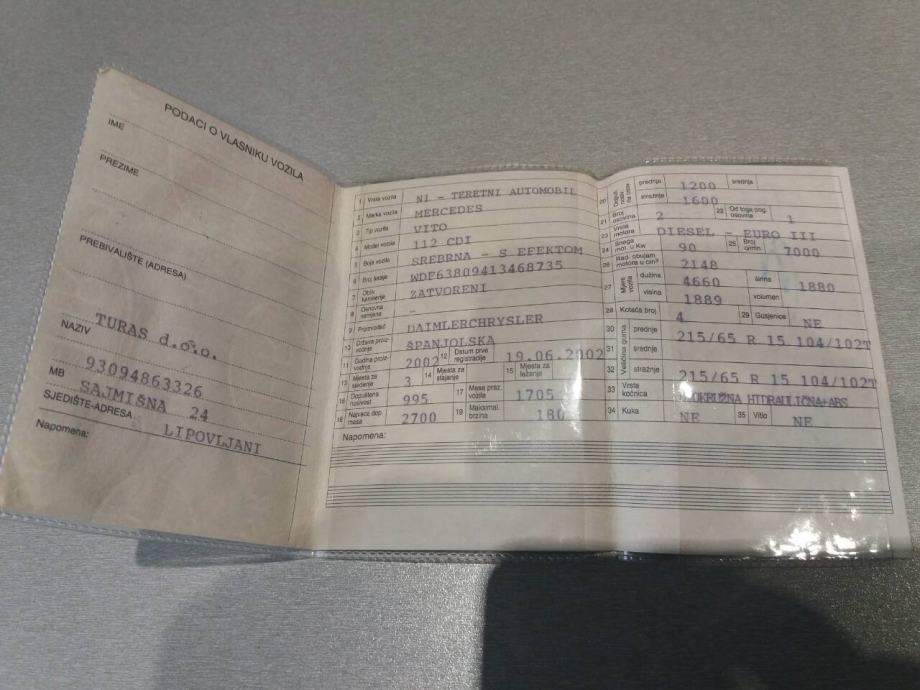 PODACI O VLASNIKU VOZILA
IME
PREZIME
PREBIVALIŠTE (ADRESA)
TURAS d.o.o.
NAZIV
93094863326
MB
SAJMIŠNA 24
SJEDIŠTE-ADRESA
LIPOVLJANI
Napomena:
1 Vrsta vozila N1 - TERETNI AUTOMOBIL
2 Marka vozila MERCEDES
3 Tip vozila VITO
4 Model vozila 112 CDI
5 Boja vozila SREBRNA - S EFEKTOM
6 Broj šasije WDF63809413468735
7 Oblik karoserije ZATVORENI
8 Osnovna namjena -
9 Proizvođač DAIMLERCHRYSLER
10 Država proizvodnje ŠPANJOLSKA
11 Godina proizvodnje 2002 12 Datum prve registracije 19.06.2002
13 Mjesta za sjedenje 3 14 Mjesta za stajanje 15 Mjesta za ležanje
16 Dopuštena nosivost 995 17 Masa praz. vozila 1705
18 Najveća dop. masa 2700 19 Maksimal. brzina 180
Napomena:
20 prednje 1200 srednje
stražnje 1600
21 Broj osovina 2 22 Od toga pog. osovina 1
23 Vrsta motora DIESEL - EURO III
24 Snaga mot. u Kw 90 25 Broj o/min 7000
26 Rad. obujam motora u cm³ 2148
27 Mjere vozila dužina 4660 širina 1880
visina 1889 volumen
28 Kotača broj 4 29 Gusjenice NE
Veličina guma
30 prednje 215/65 R 15 104/102T
31 srednje
32 stražnje 215/65 R 15 104/102T
33 Vrsta kočnica HIDRAULIČNA+ABS
34 Kuka NE 35 Vitlo NE